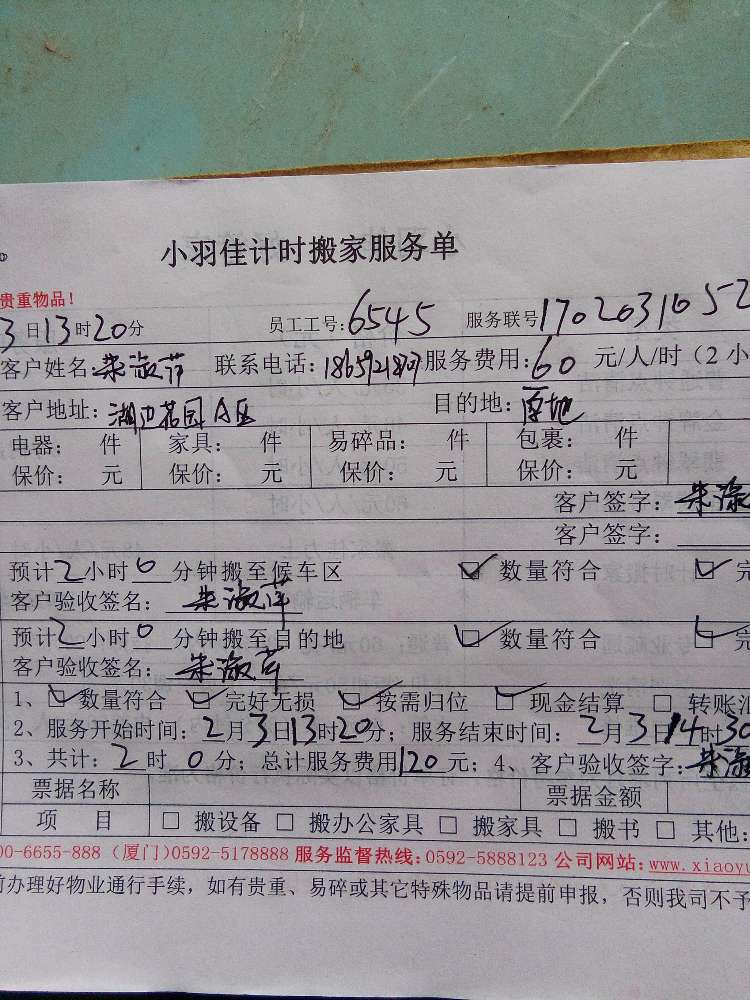 小羽佳计时搬家服务单
贵重物品！
3日13时20分 员工工号:6545 服务联号1702031052
客户姓名:朱淑萍 联系电话: 服务费用:60 元/人/时（2小
客户地址: 湖边花园A区 目的地:原地
电器： 件 家具： 件 易碎品： 件 包裹： 件
保价： 元 保价： 元 保价： 元 保价： 元
客户签字：朱淑
客户签字：
预计2小时0分钟搬至候车区 ☑ 数量符合 ☑ 完
客户验收签名：朱淑萍
预计2小时0分钟搬至目的地 ☑ 数量符合 ☑ 完
客户验收签名：朱淑萍
1、☑数量符合 ☑完好无损 ☑按需归位 ☑现金结算 □ 转账汇
2、服务开始时间：2月3日13时20分；服务结束时间：2月3日14时30
3、共计：2时0分；总计服务费用120元；4、客户验收签字：朱淑
票据名称 票据金额
项 目 □ 搬设备 □ 搬办公家具 □ 搬家具 □ 搬书 □ 其他:
00-6655-888（厦门)0592-5178888 服务监督热线:0592-5888123 公司网站:www.xiaoyu
前办理好物业通行手续，如有贵重、易碎或其它特殊物品请提前申报，否则我司不予